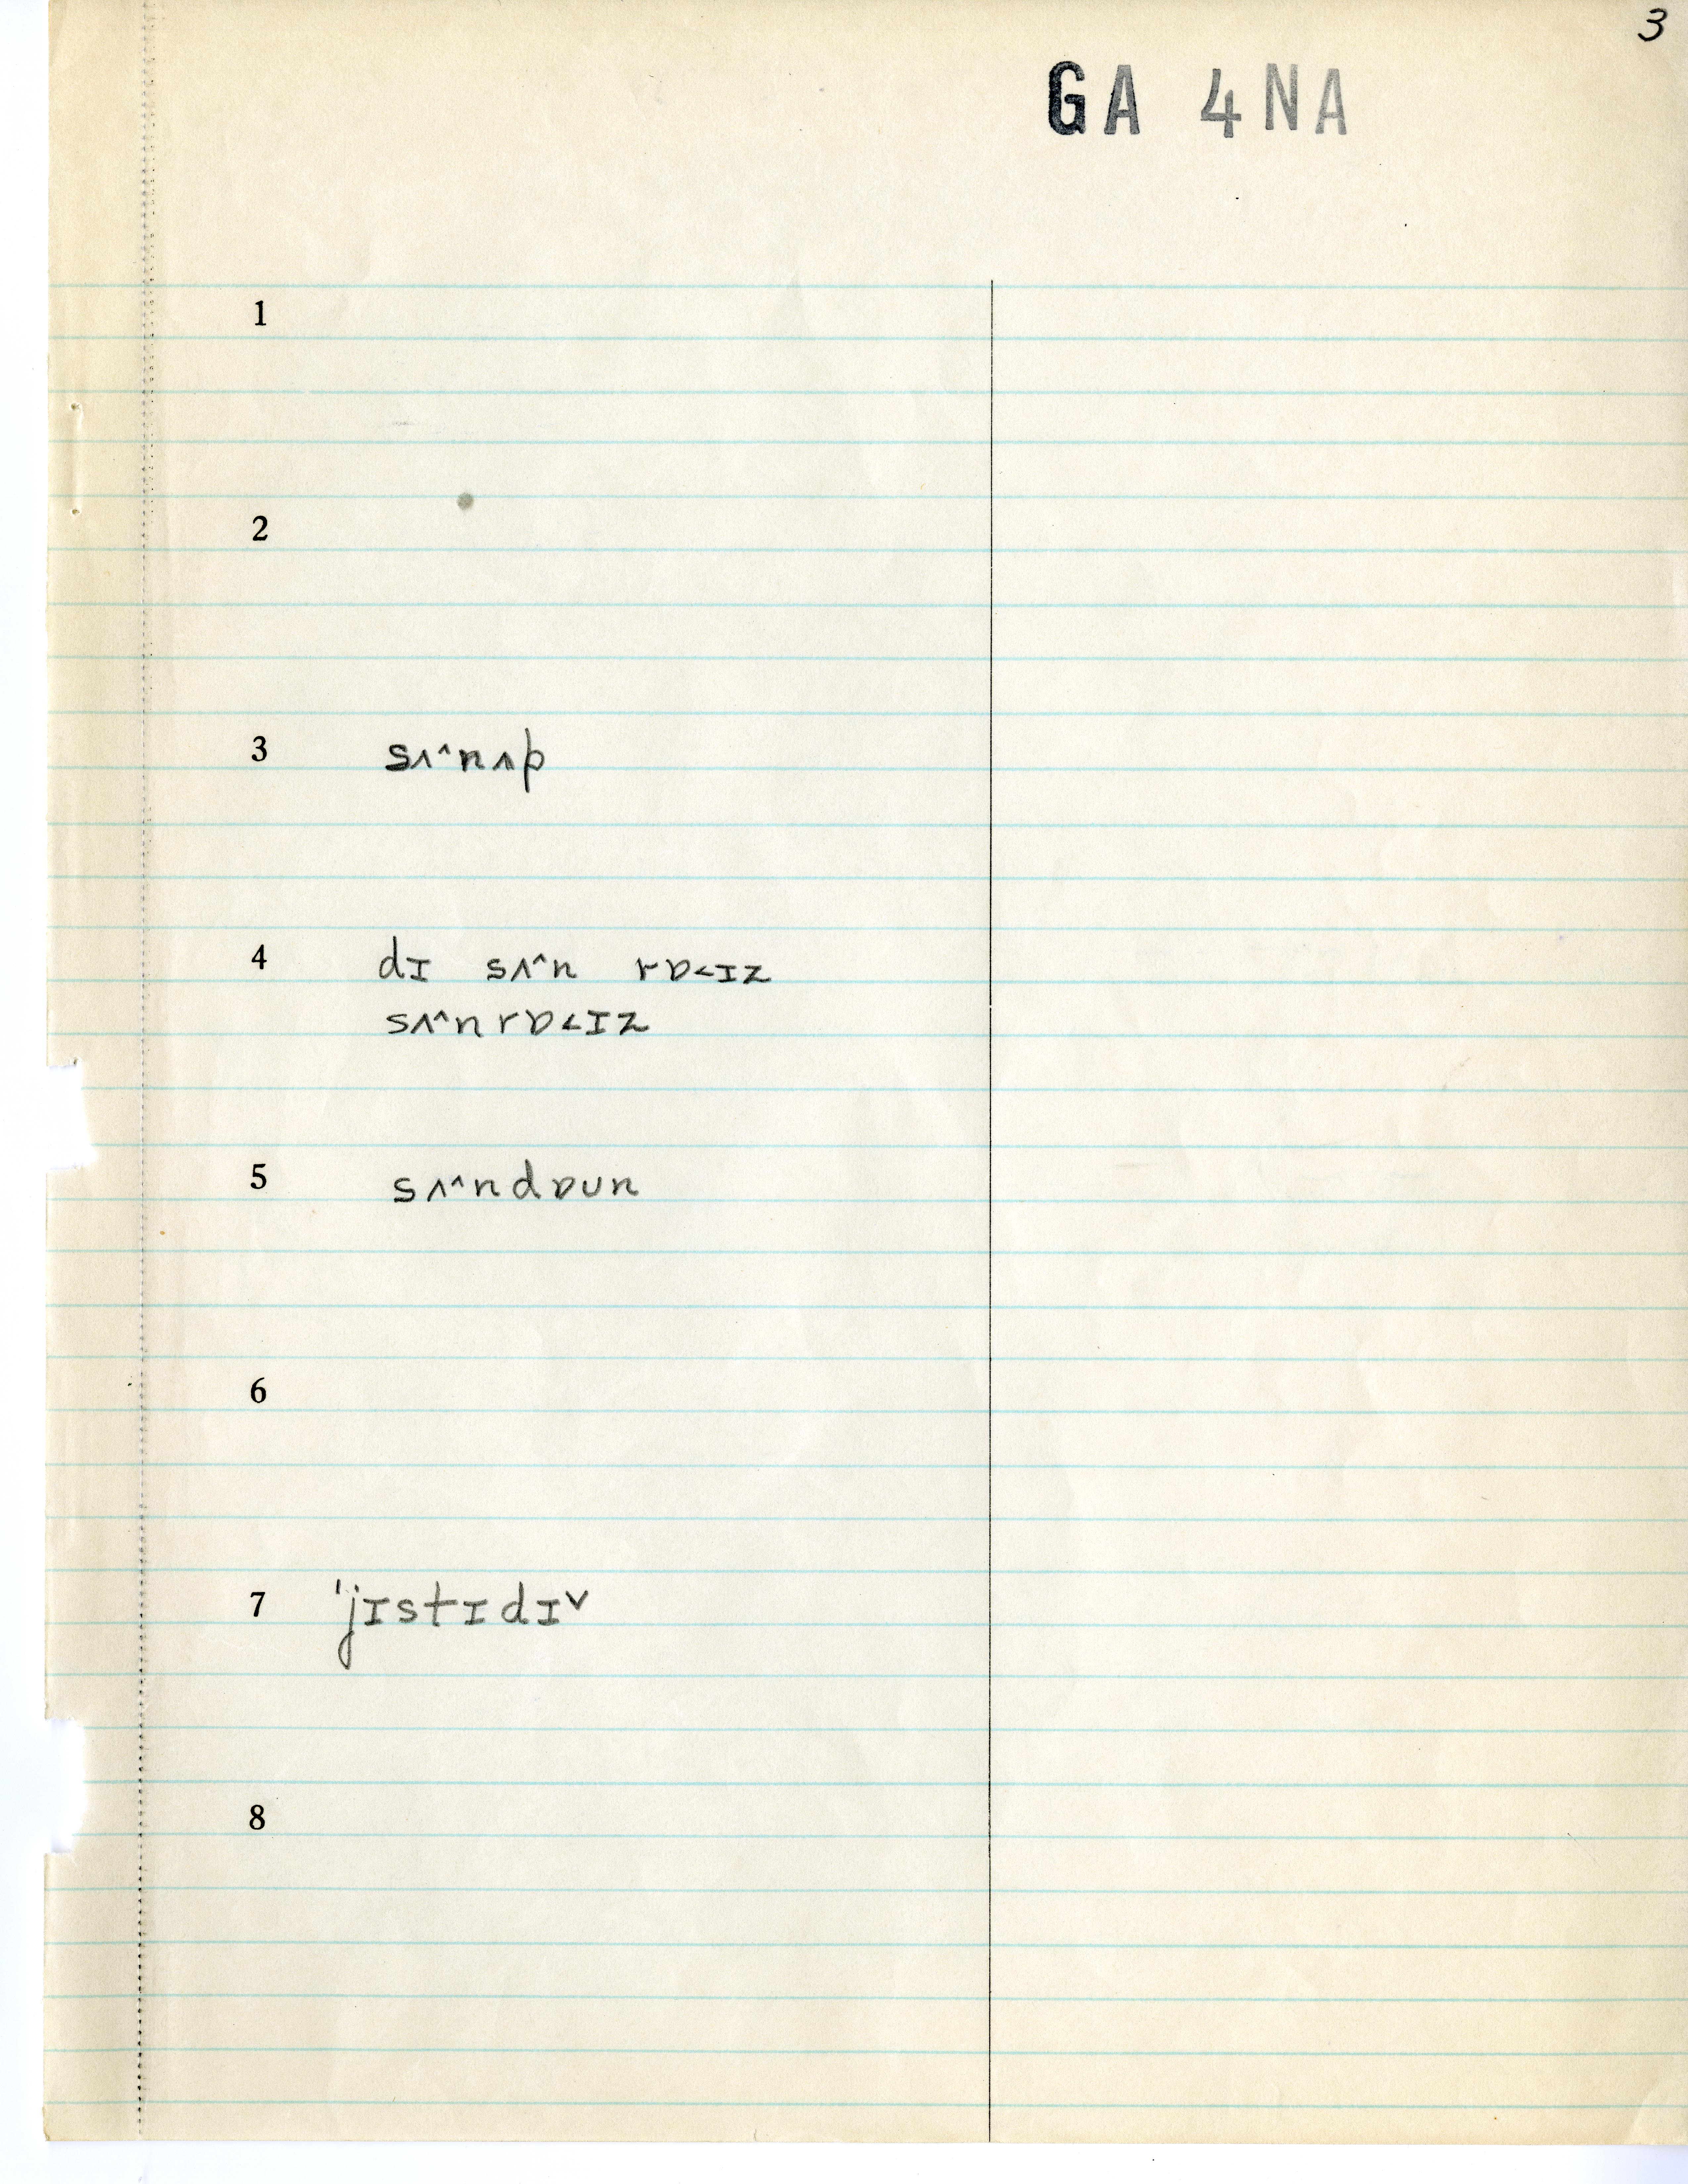 3
GA 4NA
1
2
3 sʌ^nʌp
4 dɪ sʌ^n rɒ<ɪz
sʌ^nrɒ<ɪz
5 sʌ^ndɒʊn
6
7 'jɪstɪdɪˇ
8